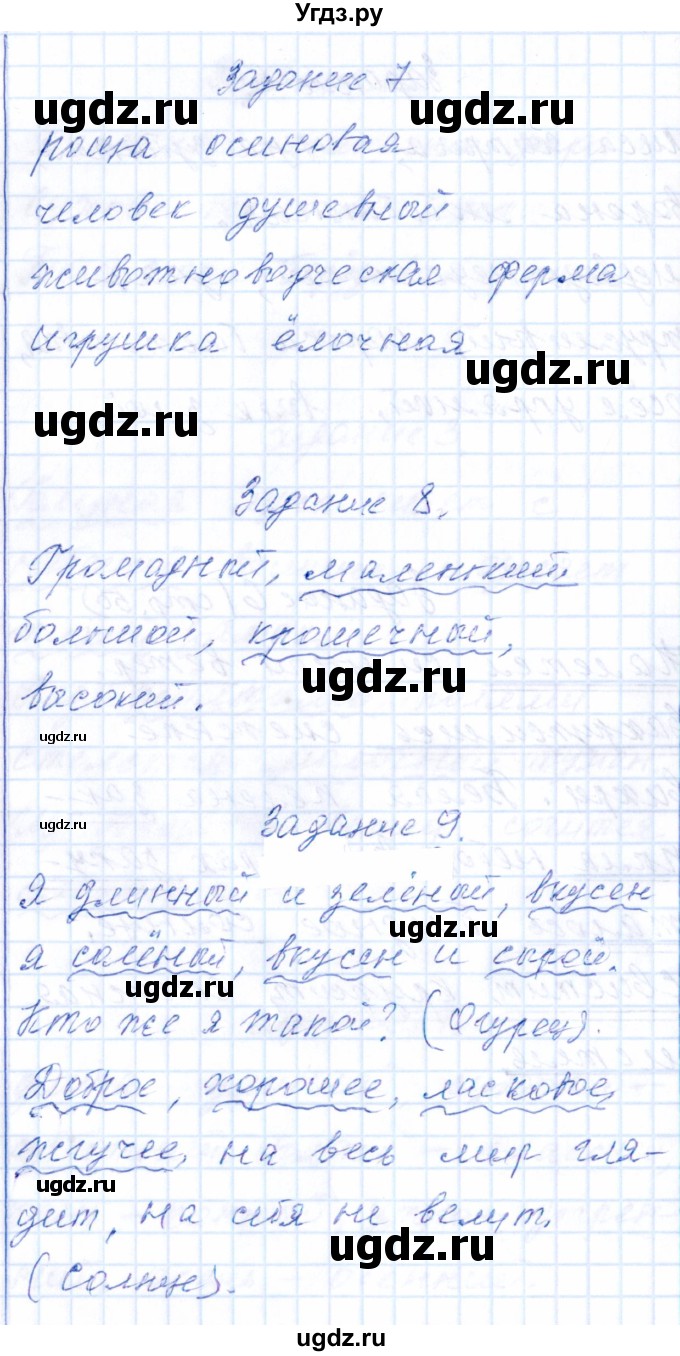 Угдз.ру
Задание 7
ugdz.ru ugdz.ru
роща осиновая
человек душевный
животноводческая ферма
игрушка ёлочная
ugdz.ru
ugdz.ru
Задание 8.
Громадный, маленький
большой, крошечный,
ugdz.ru
высокий.
ugdz.ru
ugdz.ru
Задание 9.
Я длинный и зелёный, вкусен
ugdz.ru
я солёный, вкусен и сырой.
ugdz.ru
Кто же я такой? (Огурец).
Доброе, хорошее, ласковое,
жгучее, на весь мир гля-
ugdz.ru
дит, на себя не велит.
ugdz.ru
(Солнце).
ugdz.ru